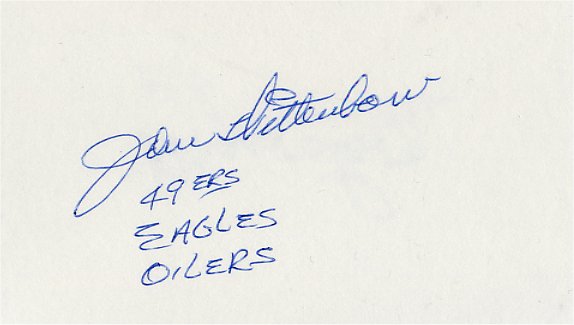 John Wittenborn
49ERS
EAGLES
OILERS